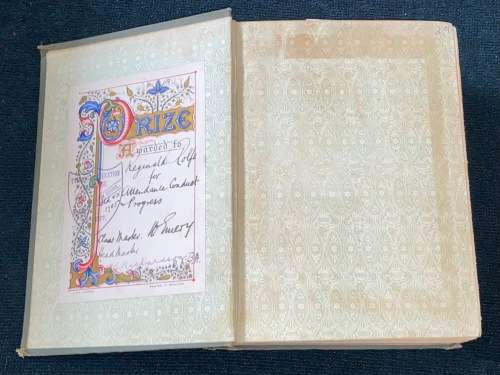 PRIZE
Awarded to
Reginald Rolfe
for
Attendance Conduct
Progress
Class Master. W Emery
Head Master